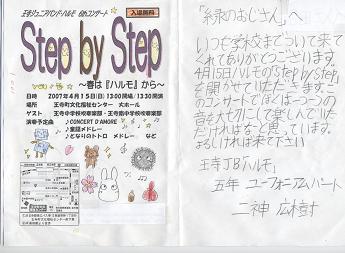 王寺ジュニアバンド・ハルモ 6thコンサート
入場無料
Step by Step
～春は『ハルモ』から～
日時 2007年4月15日(日)13:00開場/13:30開演
場所 王寺町文化福祉センター 大ホール
ゲスト 王寺中学校吹奏楽部・王寺南中学校吹奏楽部
演奏予定曲 ♪CONCERT D'AMORE
♪童謡メドレー
♪となりのトトロ メドレー など
「緑のおじさん」へ
いつも学校までついて来て
くれてありがとうございます。
4月15日ハルモの「Step by Step」
を開かせていただきます。こ
のコンサートでぼくは一つ一つの
音を大切にひくので楽しんでいた
だければなと思っています。
よろしければ来て下さい
王寺JB「ハルモ」
五年 ユーフォニアムパート
二神 広樹